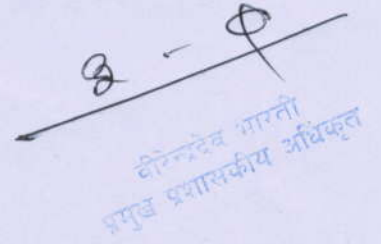 वीरेन्द्रदेव भारती
प्रमुख प्रशासकीय अधिकृत